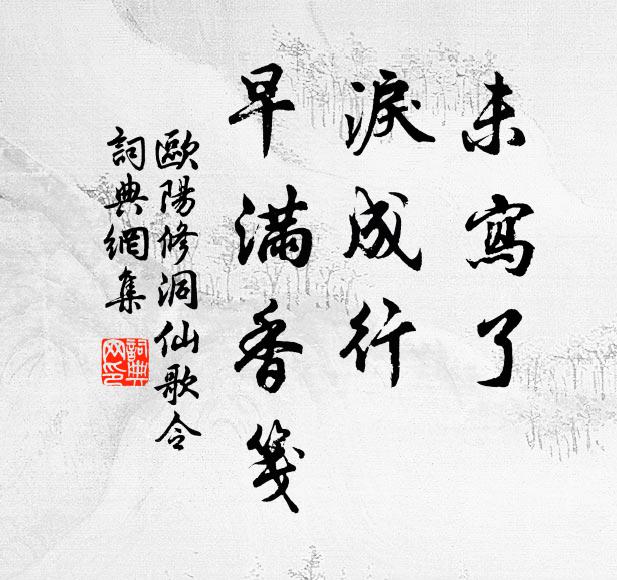 未寫了
淚成行
早滿香箋
歐陽修洞仙歌令
詞典網集
詞典
网印